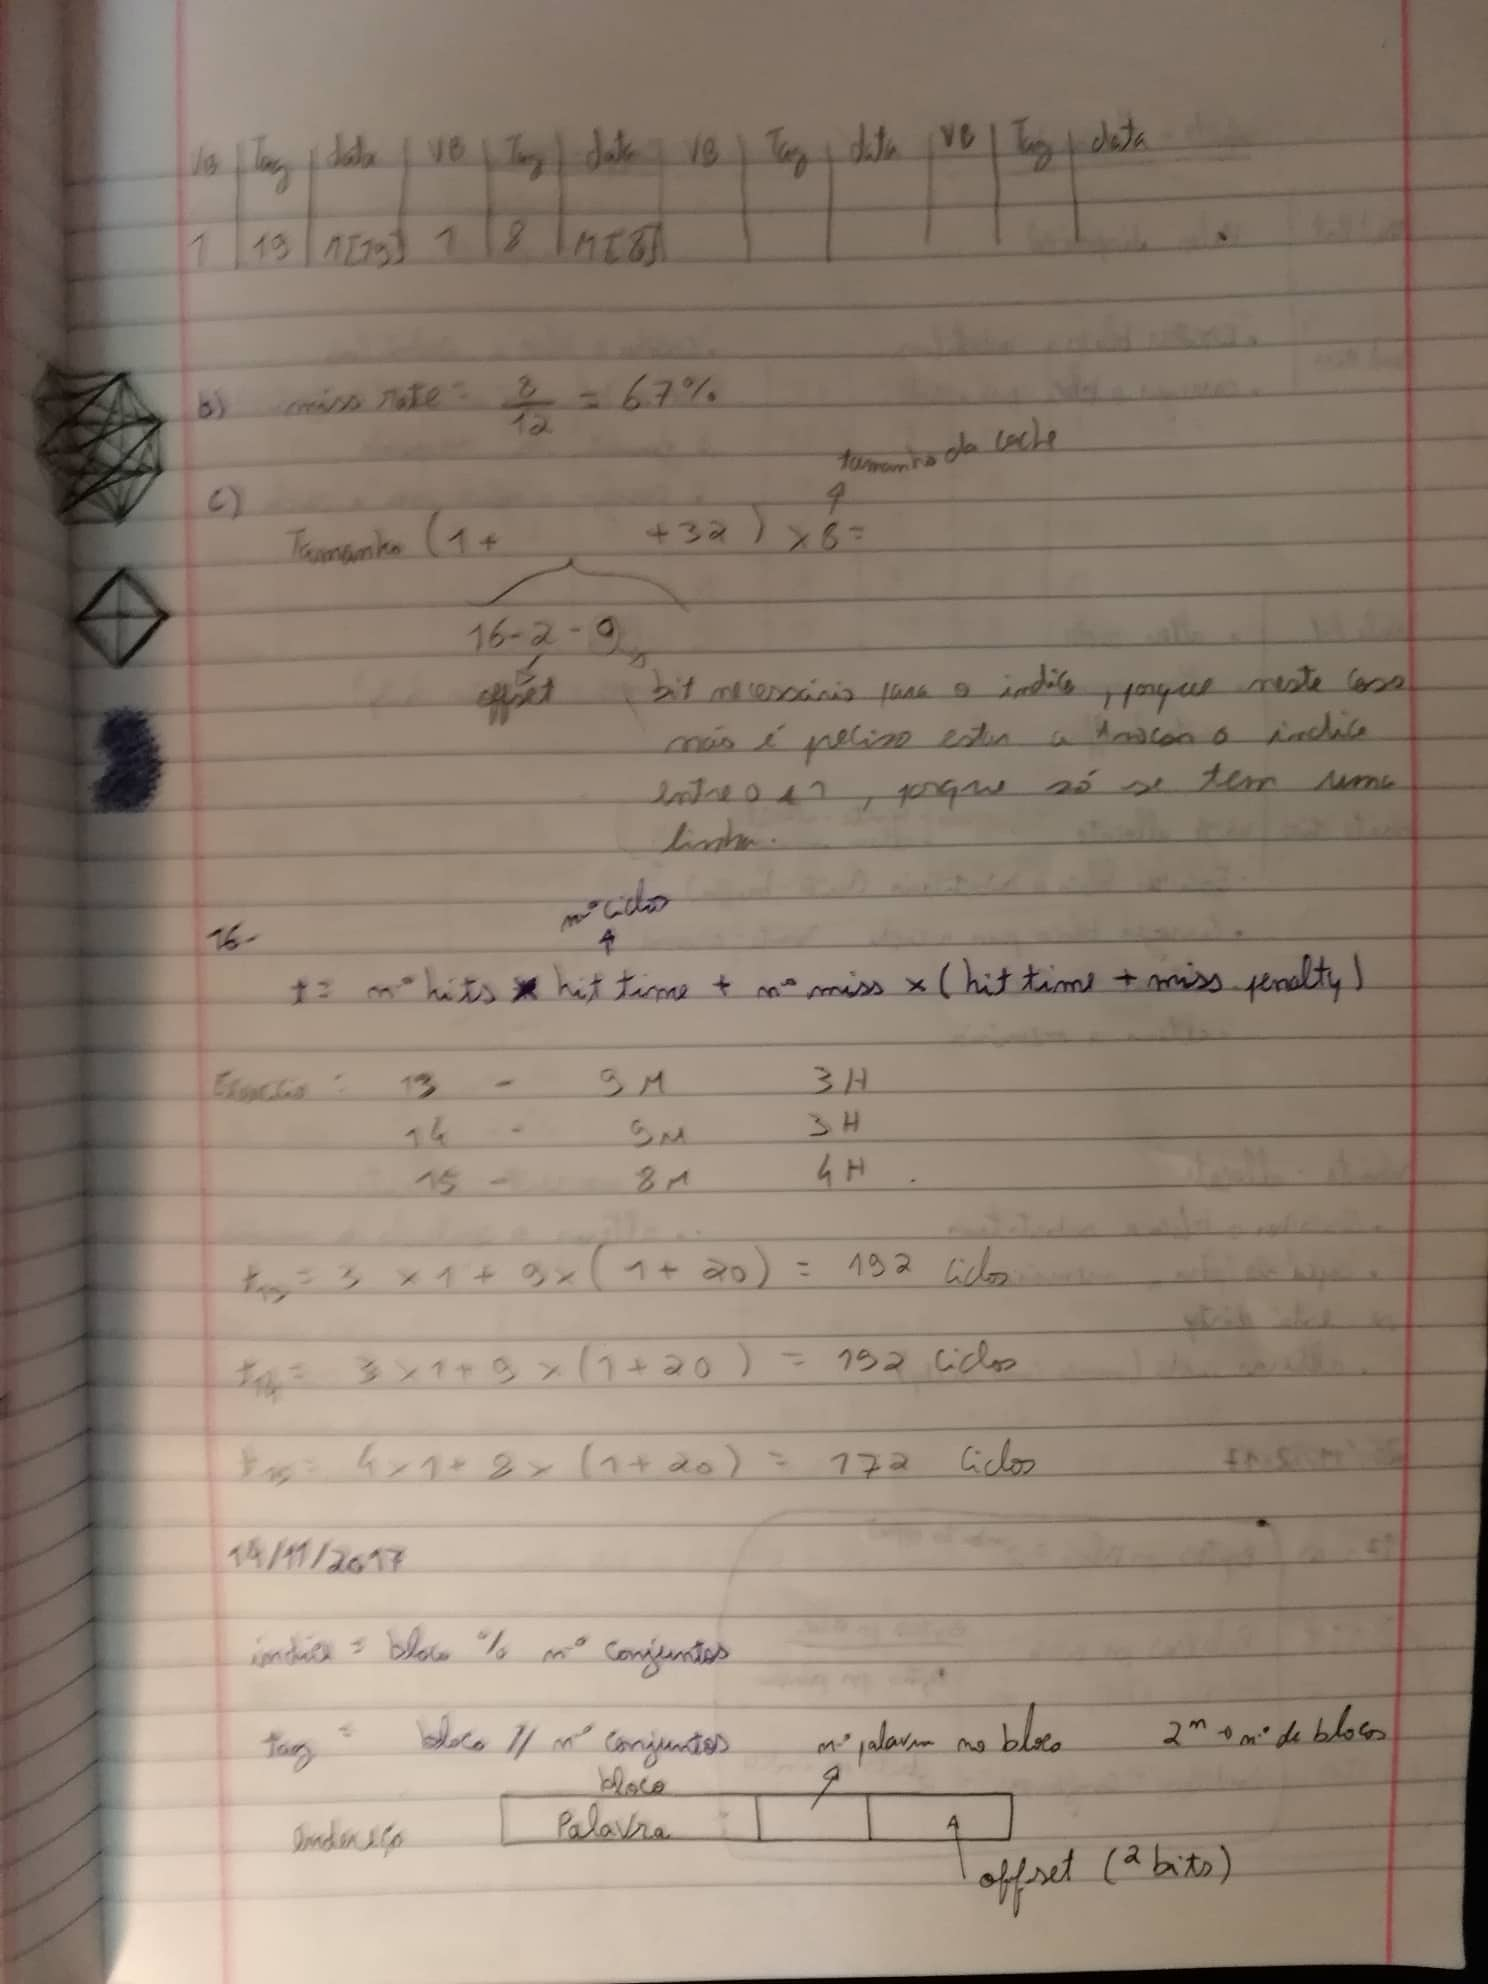 VB Tag data VB Tag data VB Tag data VB Tag data
1 19 M[19] 1 8 M[8]
b) miss rate = 8/12 = 67%
tamanho da cache
c)
Tamanho (1+ +32) × 8 =
16-2-0
offset bit necessário para o indice, porque neste caso
não é preciso estar a trocar o indice
entre 0 e 1, porque só se tem uma
linha.
nº ciclos
16-
t = nº hits × hit time + nº miss × (hit time + miss penalty)
Exercício: 13 - 9M 3H
14 - 9M 3H
15 - 8M 4H
t13 = 3 × 1 + 9 × (1 + 20) = 192 ciclos
t14 = 3 × 1 + 9 × (1 + 20) = 192 ciclos
t15 = 4 × 1 + 8 × (1 + 20) = 172 ciclos
14/11/2017
indice = bloco % nº conjuntos
tag = bloco // nº conjuntos nº palavra no bloco 2^n → nº de blocos
bloco
Endereço Palavra
offset (2 bits)